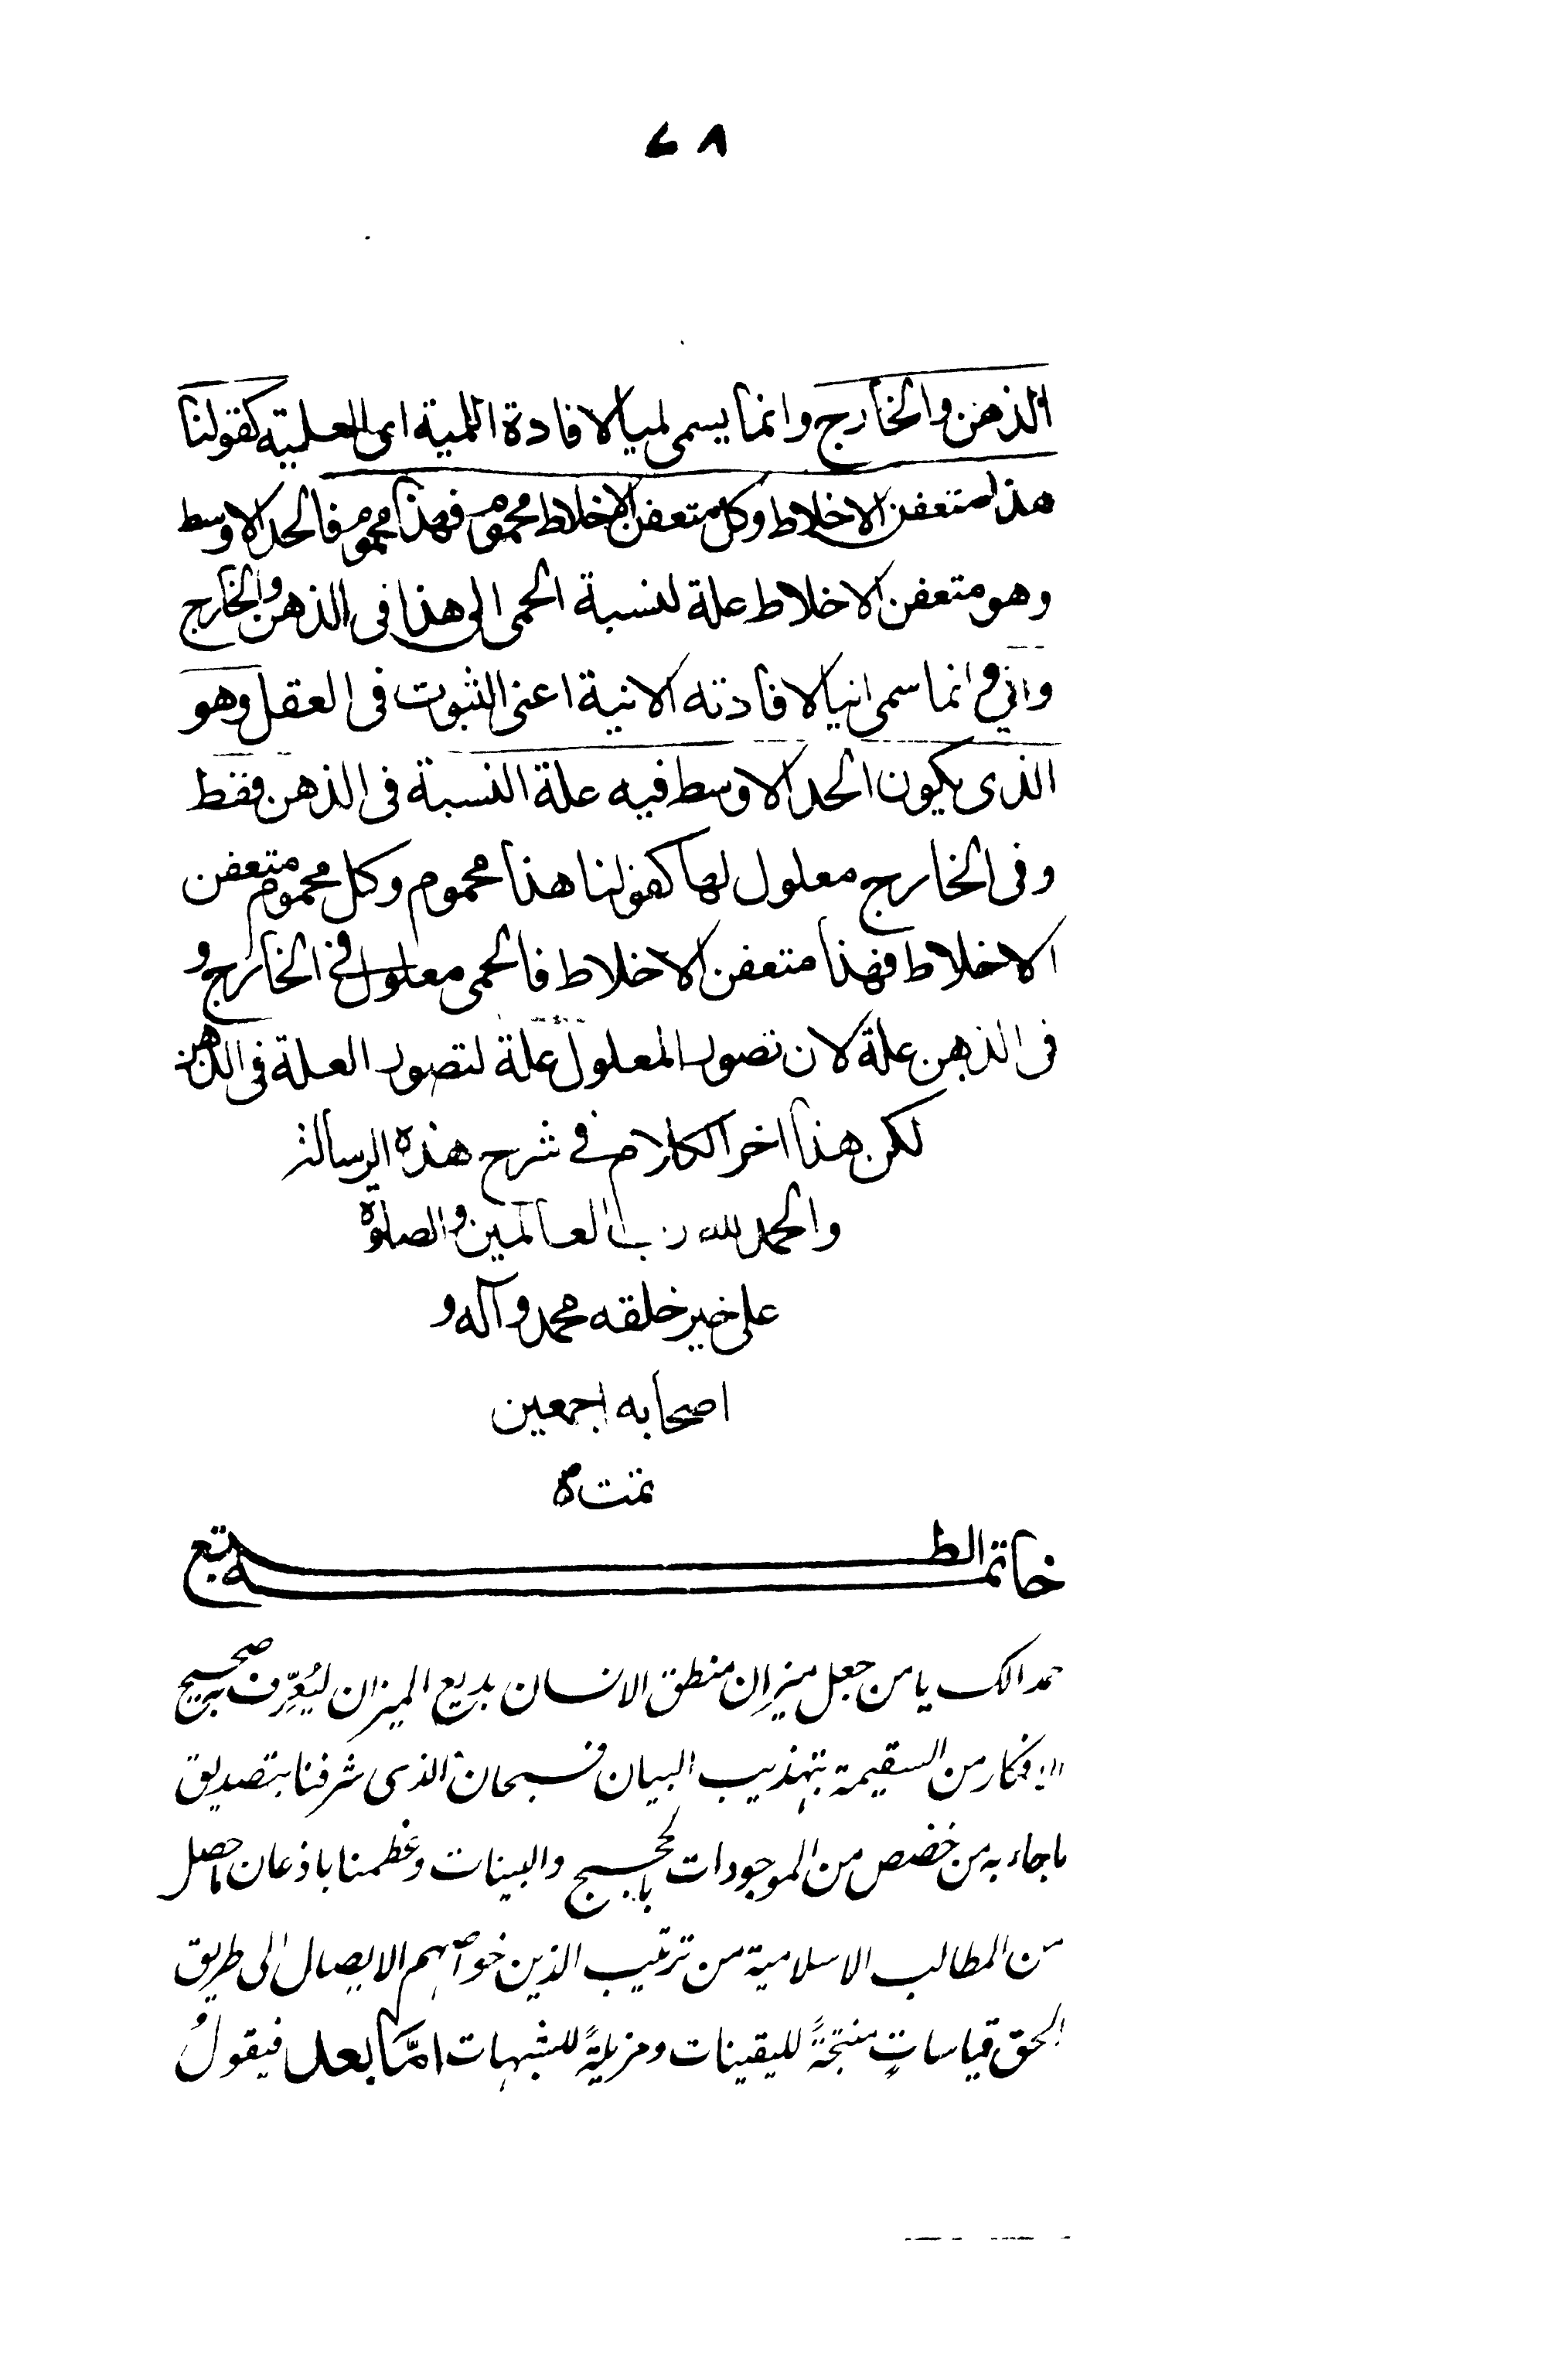 ٤٨
الذهن والخارج وانما يسمى لميا لافادة اللمية اى العلمية كقولنا
هذا متعفن الاخلاط وكل متعفن الاخلاط محموم فهذا محموم فالحد الاوسط
وهو متعفن الاخلاط علة لنسبة الحمى الى هذا فى الذهن والخارج
وانى وانما سمى انيا لافادته الانية اعنى الثبوت فى العقل وهو
الذى يكون الحد الاوسط فيه علة النسبة فى الذهن فقط
وفى الخارج معلول لها كقولنا هذا محموم وكل محموم متعفن
الاخلاط فهذا متعفن الاخلاط فالحمى معلول فى الخارج و
فى الذهن علة لان تصور المعلول علة لتصور العلة فى الذهن
لكن هذا اخر الكلام فى شرح هذه الرسالة
والحمد لله رب العالمين والصلوة
على خير خلقه محمد وآله و
اصحابه اجمعين
تمت
خاتمة الطبع
حمدا لك يا من جعل ميزان منطق الانسان بديع الميزان ليُعرِّف به صحيح
الافكار من السقيمة بتهذيب البيان فسبحان الذى شرفنا بتصديق
ما جاء به من خصص من الموجودات بالحجج والبينات وعظمنا باذعان ما حصل
من المطالب الاسلامية من ترتيب الذين خواصهم الايصال الى طريق
الحق قياساتٍ منتجةً لليقينات ومزيلةً للشبهات امّا بعد فيقولُ